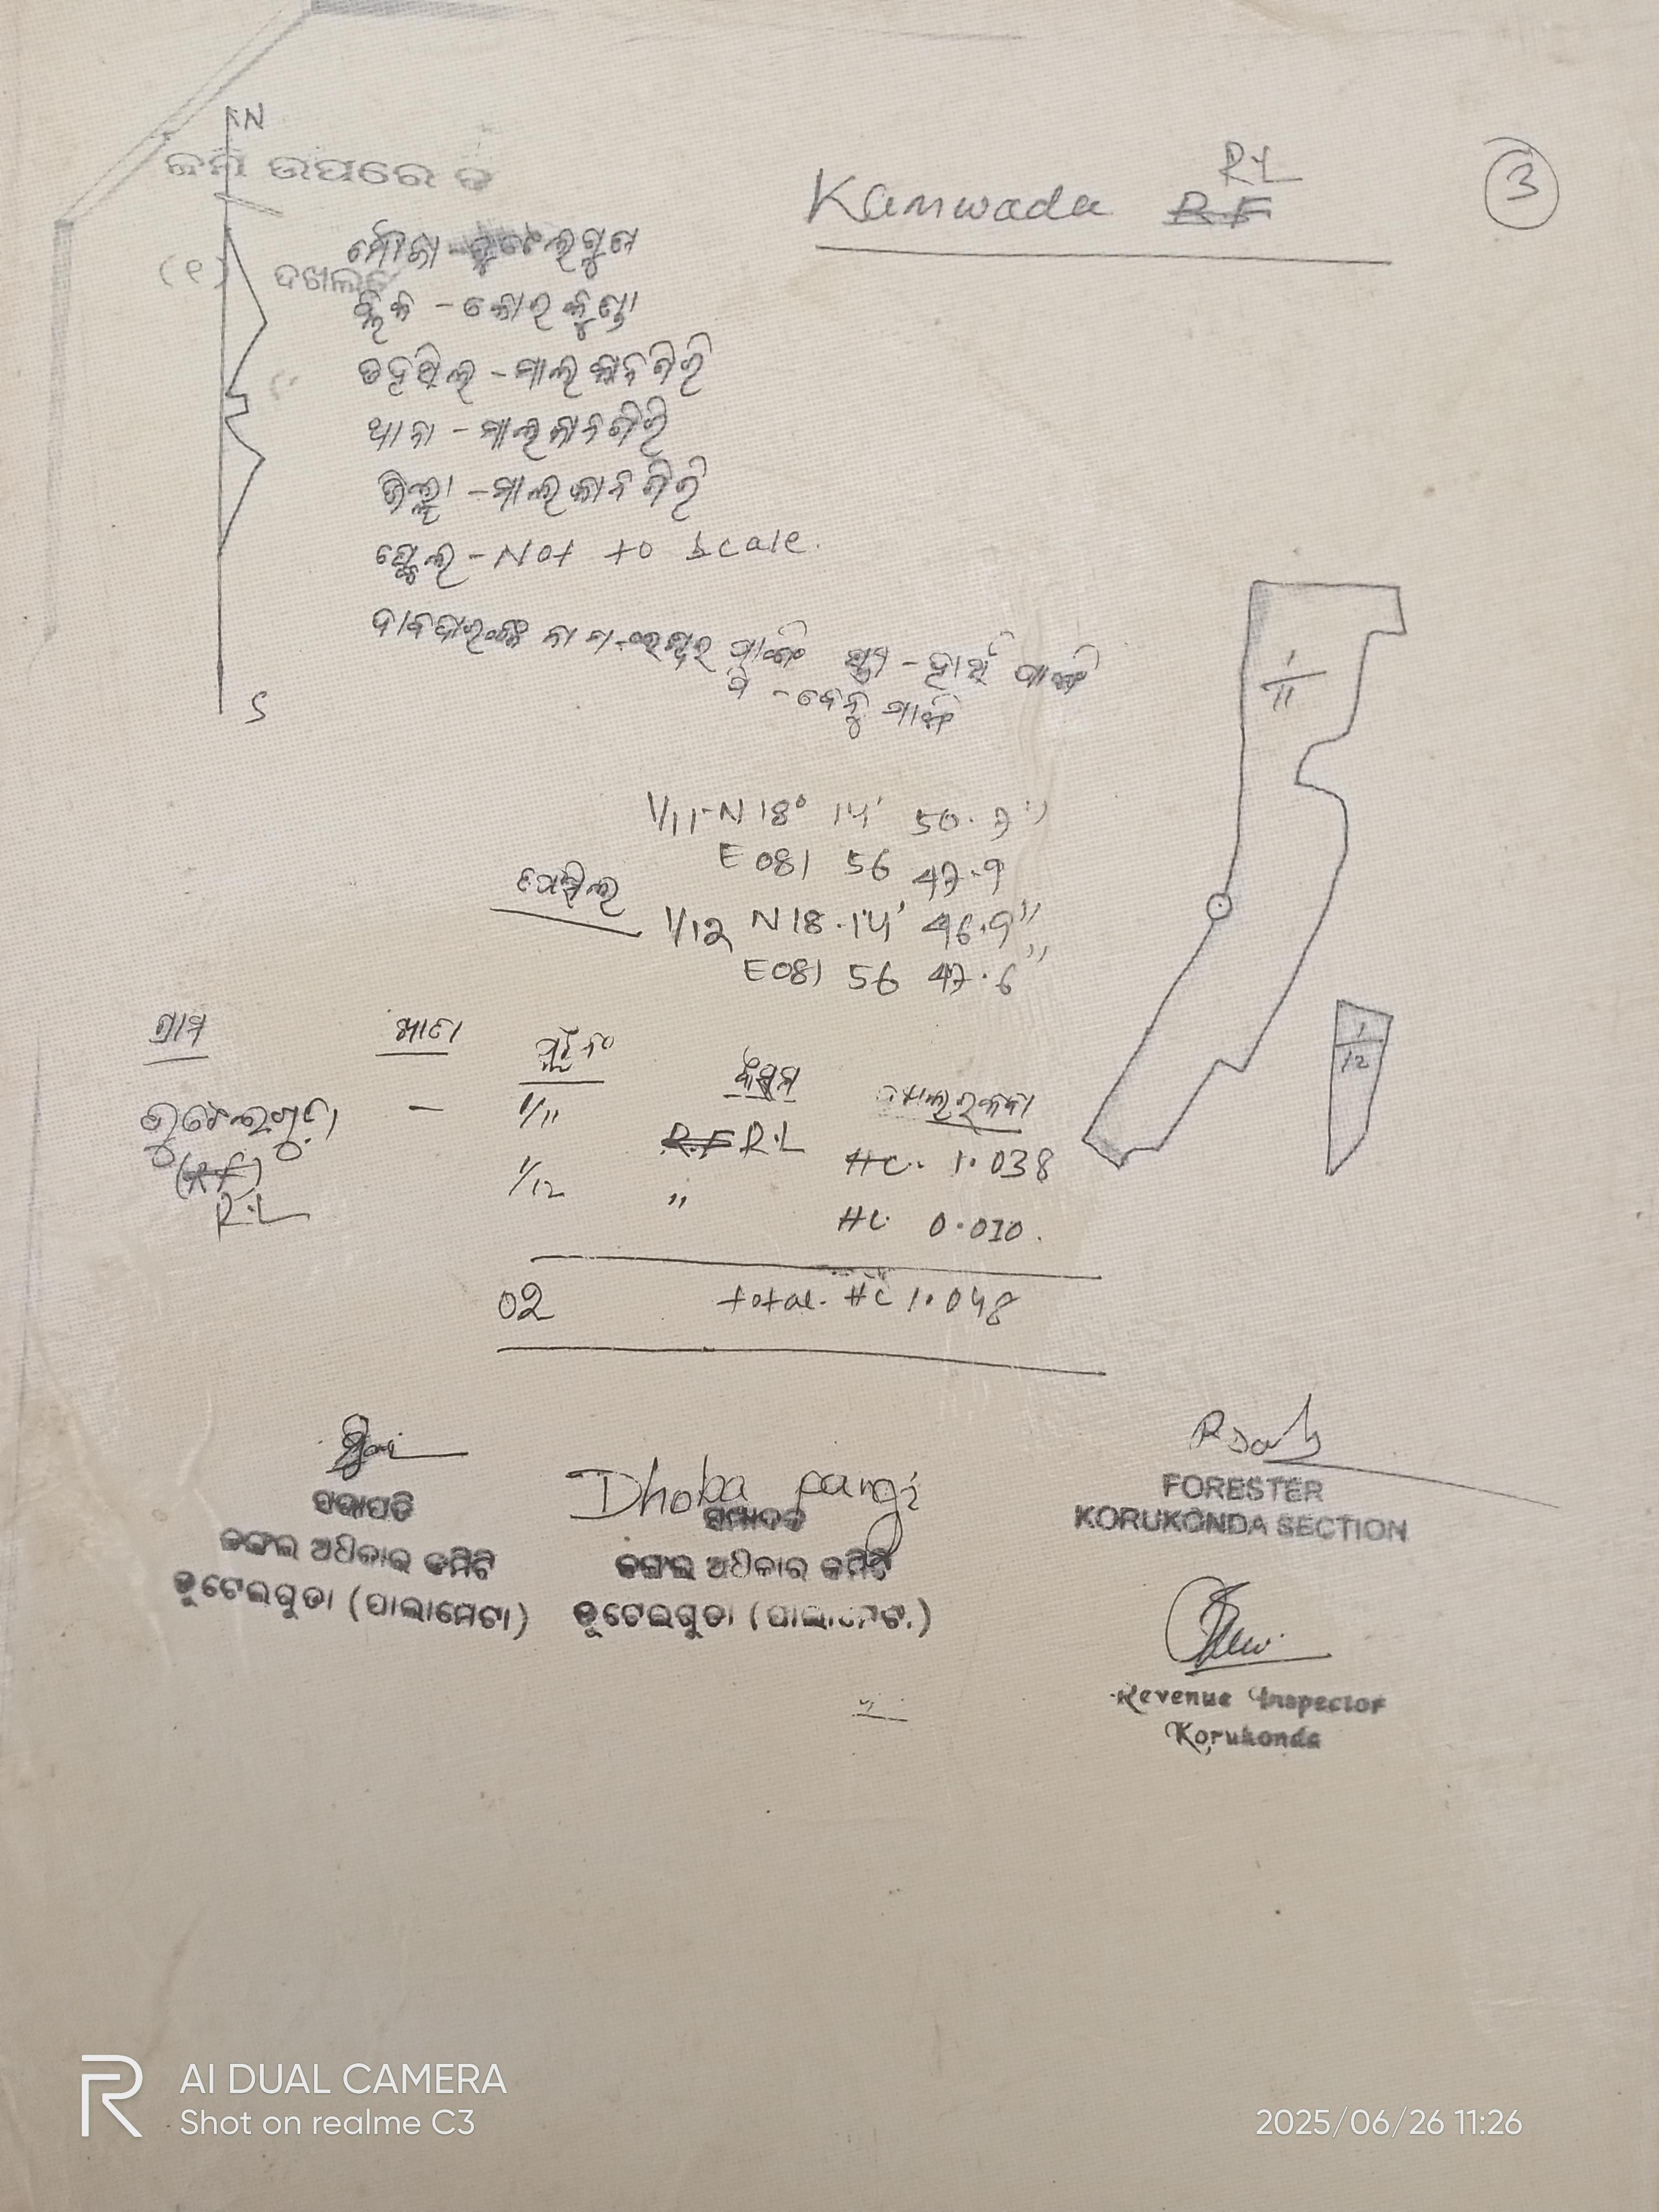 N
ଜମି ଉପରେ ଦ
Kamwada R.L
R.F
3
ମୌଜା - ଡୁଟେଲଗୁଡା
(୧) ଦଖଲ
ବ୍ଲକ - କୋରକୁଣ୍ଡା
ତହସିଲ - ମାଲକାନଗିରି
ଥାନା - ମାଲକାନଗିରି
ଜିଲ୍ଲା - ମାଲକାନଗିରି
ସ୍କେଲ - Not to Scale.
ଦାବଦାରଙ୍କ ନାମ
S
1/11
1/11-N 18° 14' 50.7"
E 081 56 47.9
1/12 N 18.14' 46.9"
E081 56 47.6"
1/12
ଗ୍ରାମ ଖାତା ପ୍ଲଟ୍ ନଂ କିସମ ଦଖଲ ରକବା
ଡୁଟେଲଗୁଡା - 1/11 R.F R.L HC. 1.038
(RF)
R.L
1/12 " HC 0.010.
02 total. HC 1.048
Dhoba pangi
ସଭାପତି
ଜଙ୍ଗଲ ଅଧିକାର କମିଟି
ଡୁଟେଲଗୁଡା (ପାଲାମେଟା)
ସମ୍ପାଦକ
ଜଙ୍ଗଲ ଅଧିକାର କମିଟି
ଡୁଟେଲଗୁଡା (ପାଲାମେଟା)
FORESTER
KORUKONDA SECTION
Revenue Inspector
Korukonda
AI DUAL CAMERA
Shot on realme C3
2025/06/26 11:26